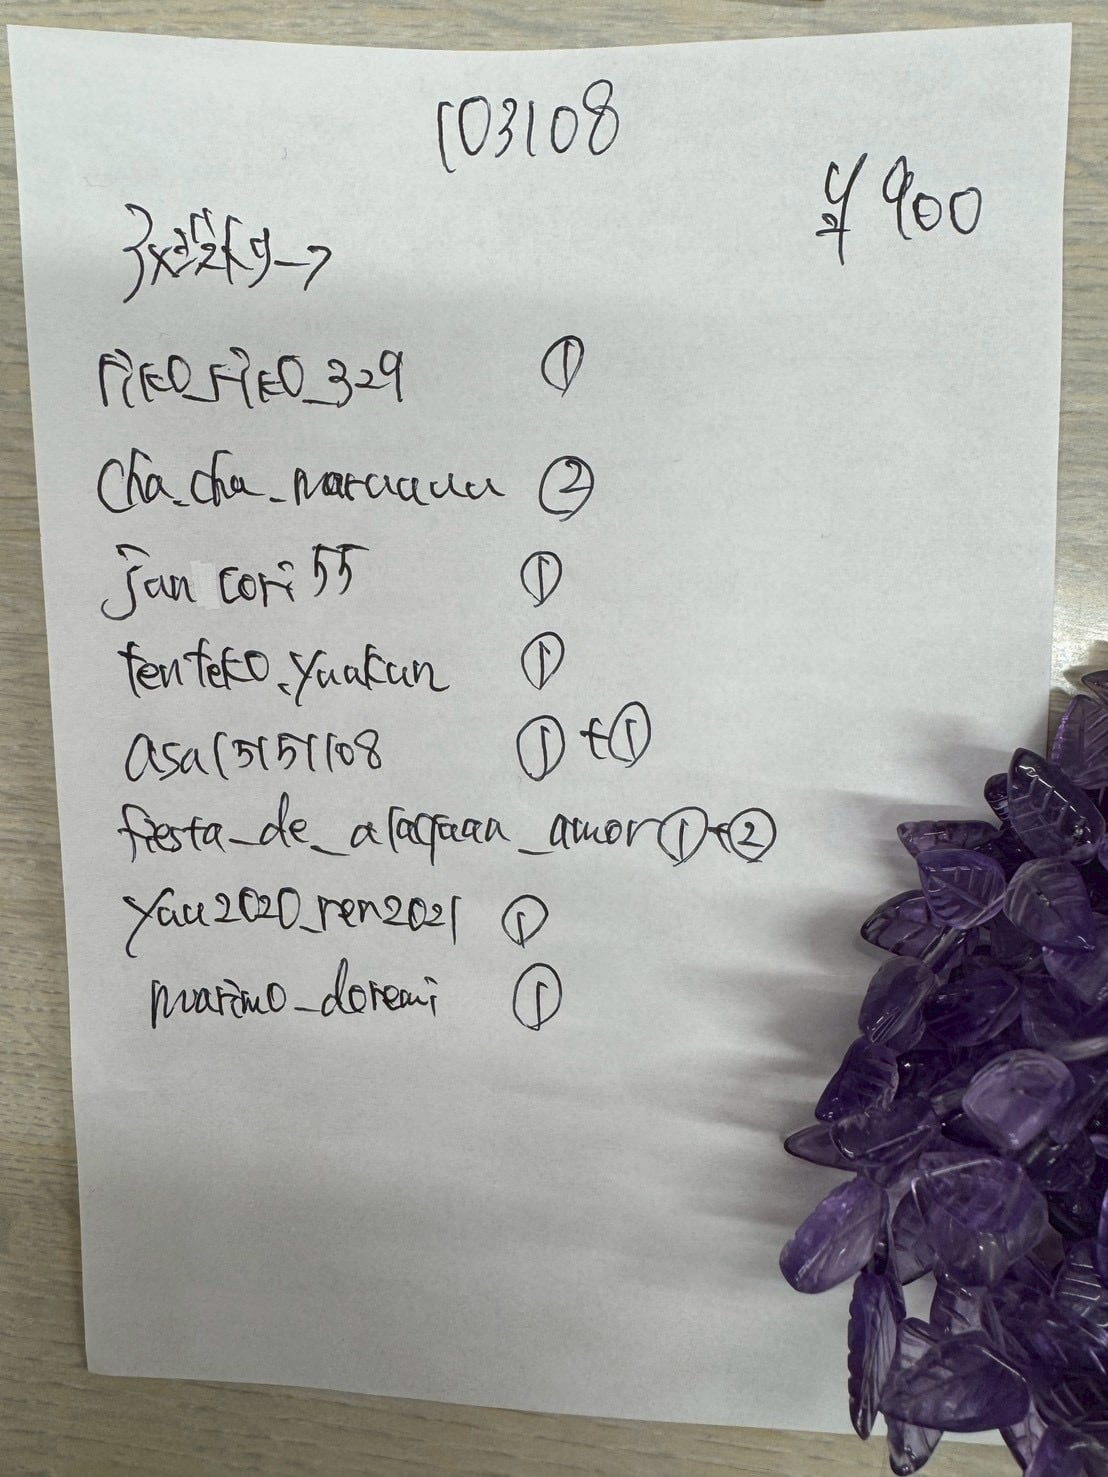 103108
¥900
PiKO_PiKO_329 ①
cha_cha_maruuuuu ②
jan cori55 ①
tenteko.yuukun ①
asa15151108 ①+①
fiesta_de_alaquaa_amor①+②
yuu2020_ren2021 ①
marimo_doremi ①